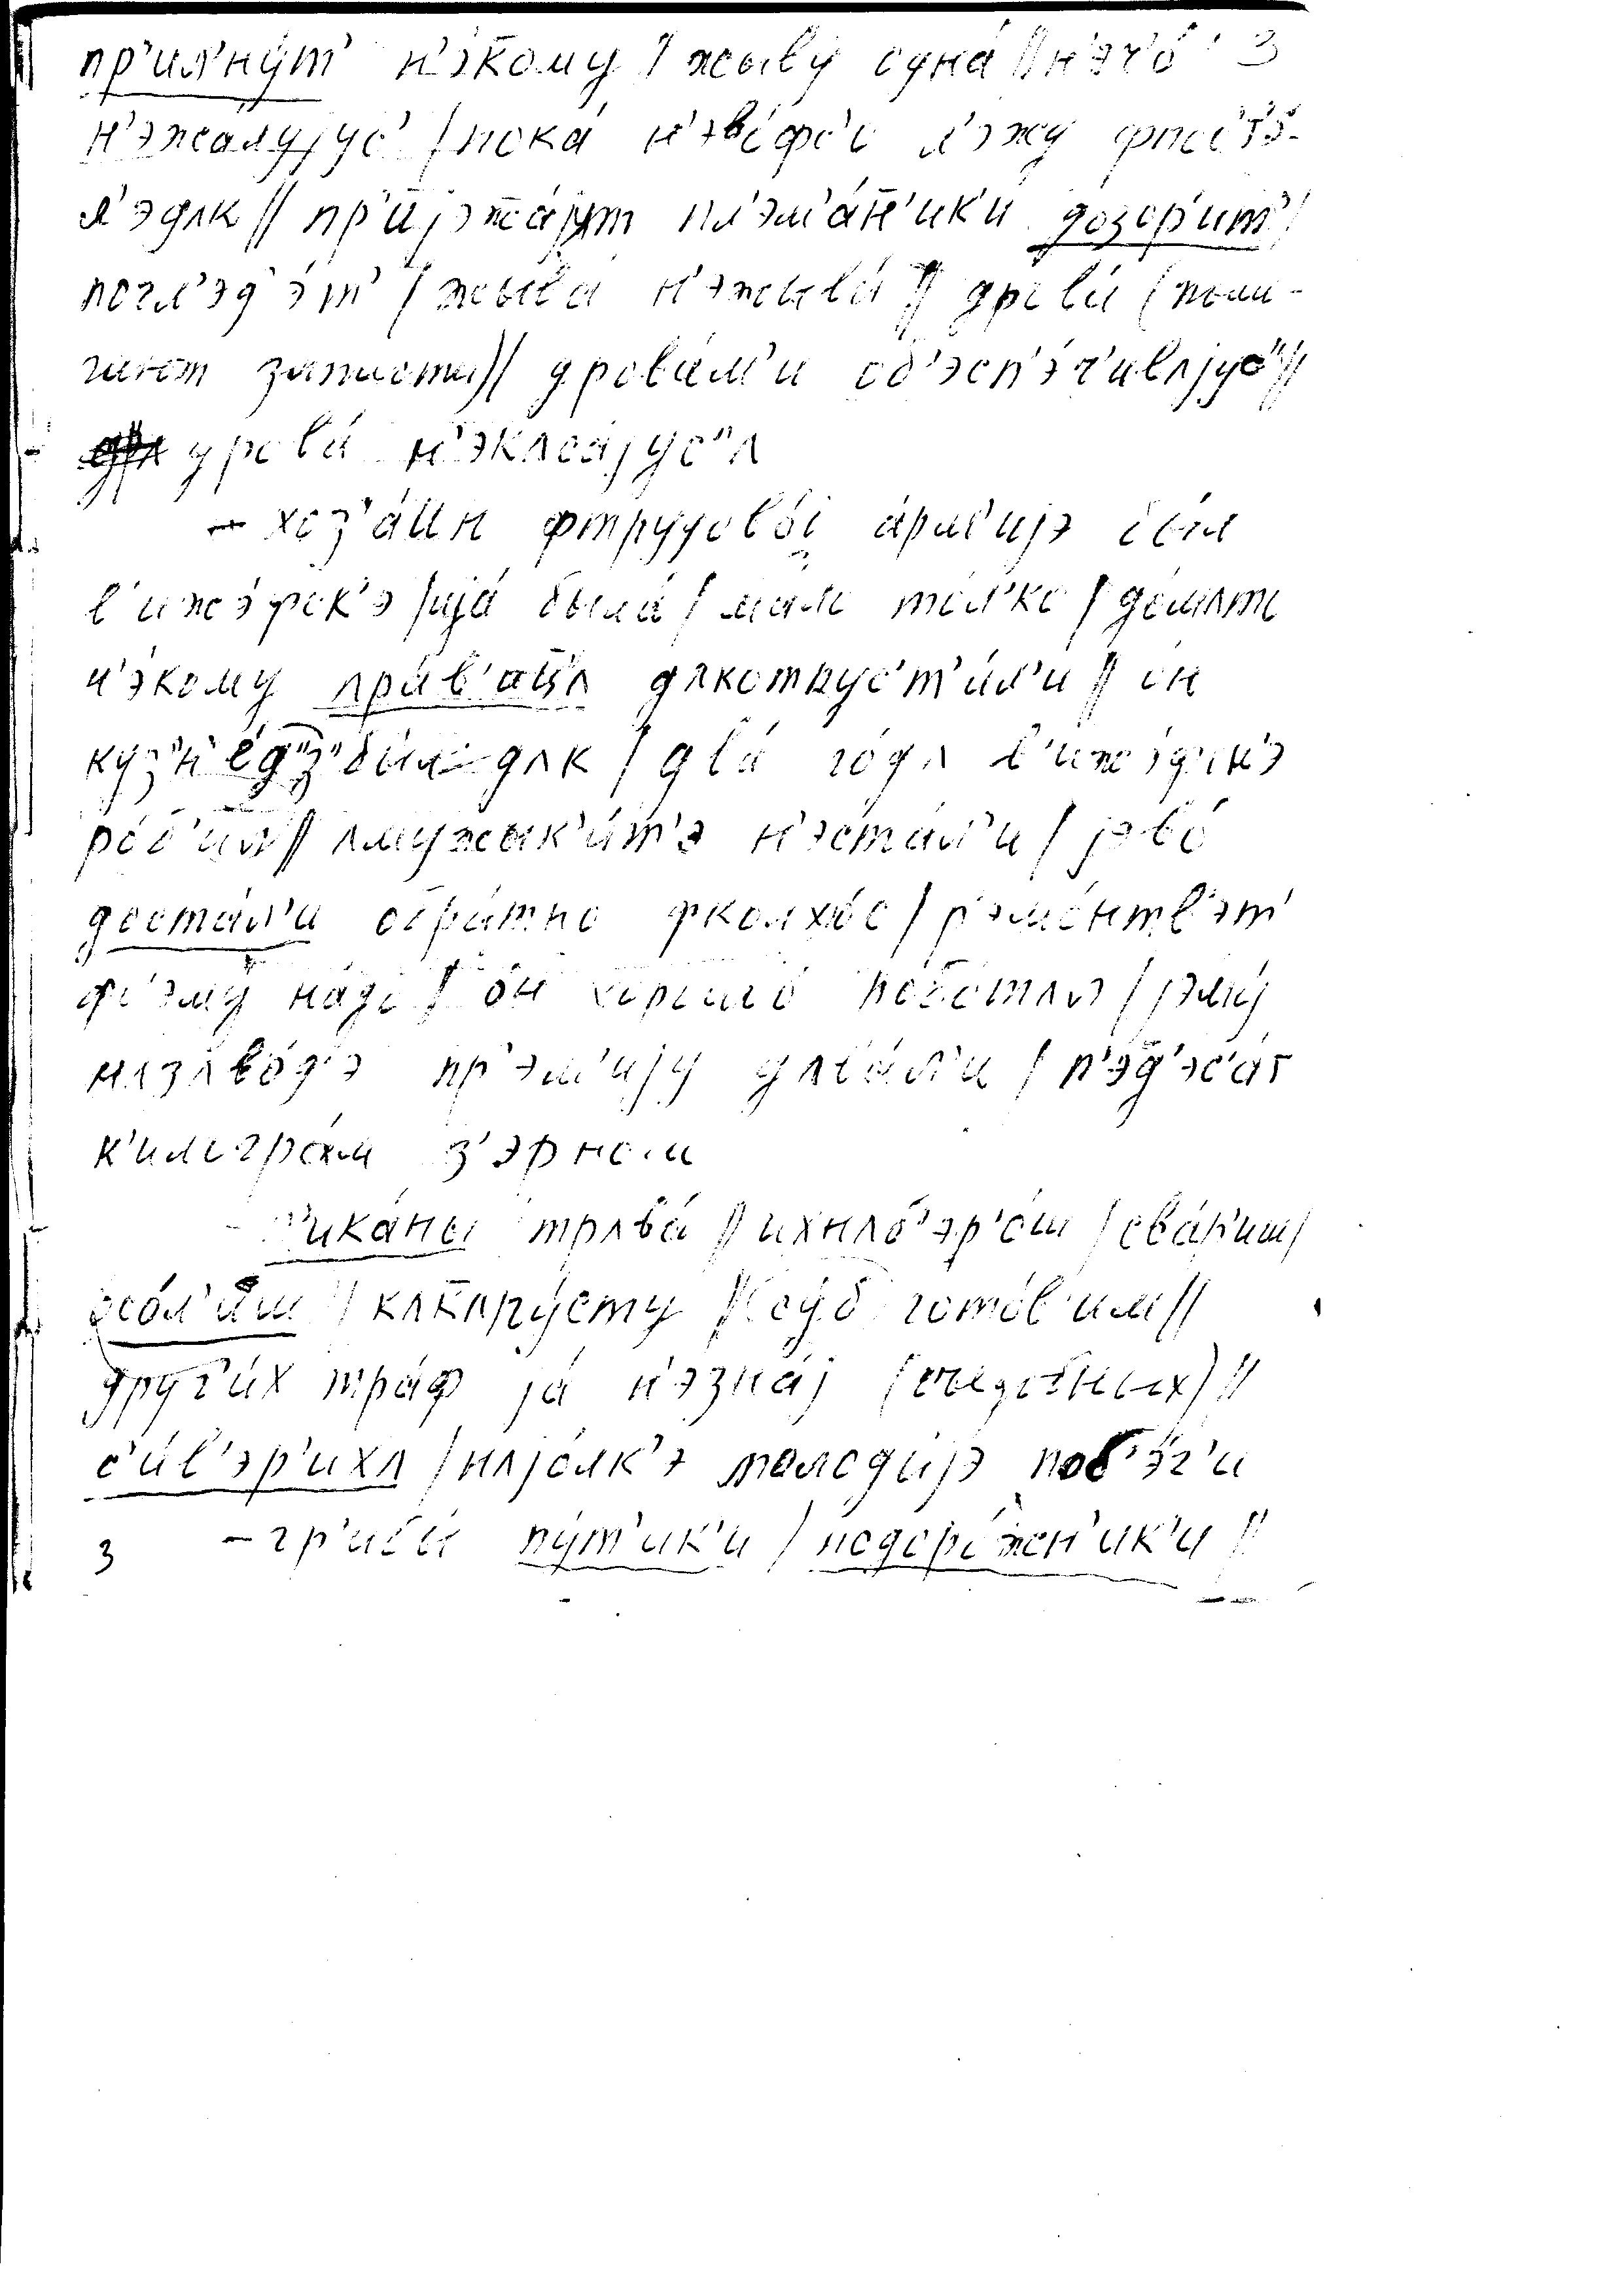 пр'ил'ну́т' н'э́кому / жыву́ одна́ // н'эч'о́ 3
н'эжа́луjус' / пока́ н'эво́фс'о л'эжу́ фпос'т'э́-
л'эдлк // пр'иjэжа́jут пл'эм'а́н'ик'и дозор'и́т' /
погл'эд'э́т' / жыва́ н'эжыва́ // дрова́ (пома-
гают запасти) // дрова́м'и об'эсп'э́ч'ивлjус' //
дрова́ н'экласа́jус'л
– хоз'а́ин фтрудово́j а́рм'иjэ бы́л
в'иже́фск'э / иjа́ была́ / мало то́л'ко / до́млтс
н'э́кому пра́в'ит'л длкотпус'т'и́л'и // о́н
куз'н'е́дз' бы́л длк / два́ го́дл в'иже́фск'э
ро́б'ил // лмужык'и́т'э н'эста́л'и / jэво́
доста́л'и обра́тно фколхо́с / р'эмо́нтв'эт'
фс'эму́ на́до / о́н хорошо́ рабо́тлл / jэму́
нлзлво́д'э пр'э́м'иjу длва́л'и / п'эд'эс'а́т
к'илогра́м з'эрном
п'ика́ны трлва́ // ихнлб'эр'о́ш / сва́р'иш /
осо́л'иш / клккпу́сту // су́б гото́в'им //
друг'и́х тра́ф jа́ н'эзна́j (съедобных) //
с'и́в'эр'ихл / нлjо́лк'э молоды́jэ поб'э́г'и
3 – гр'ибы́ пу́т'ик'и / подоро́жн'ик'и //